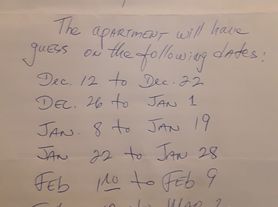 The APARTMENT will have
guess on the following dates:
Dec. 12 to Dec. 22
DEC. 26 to JAN 1
JAN. 8 to JAN 19
JAN 22 to JAN 28
FEB 1 to FEB 9